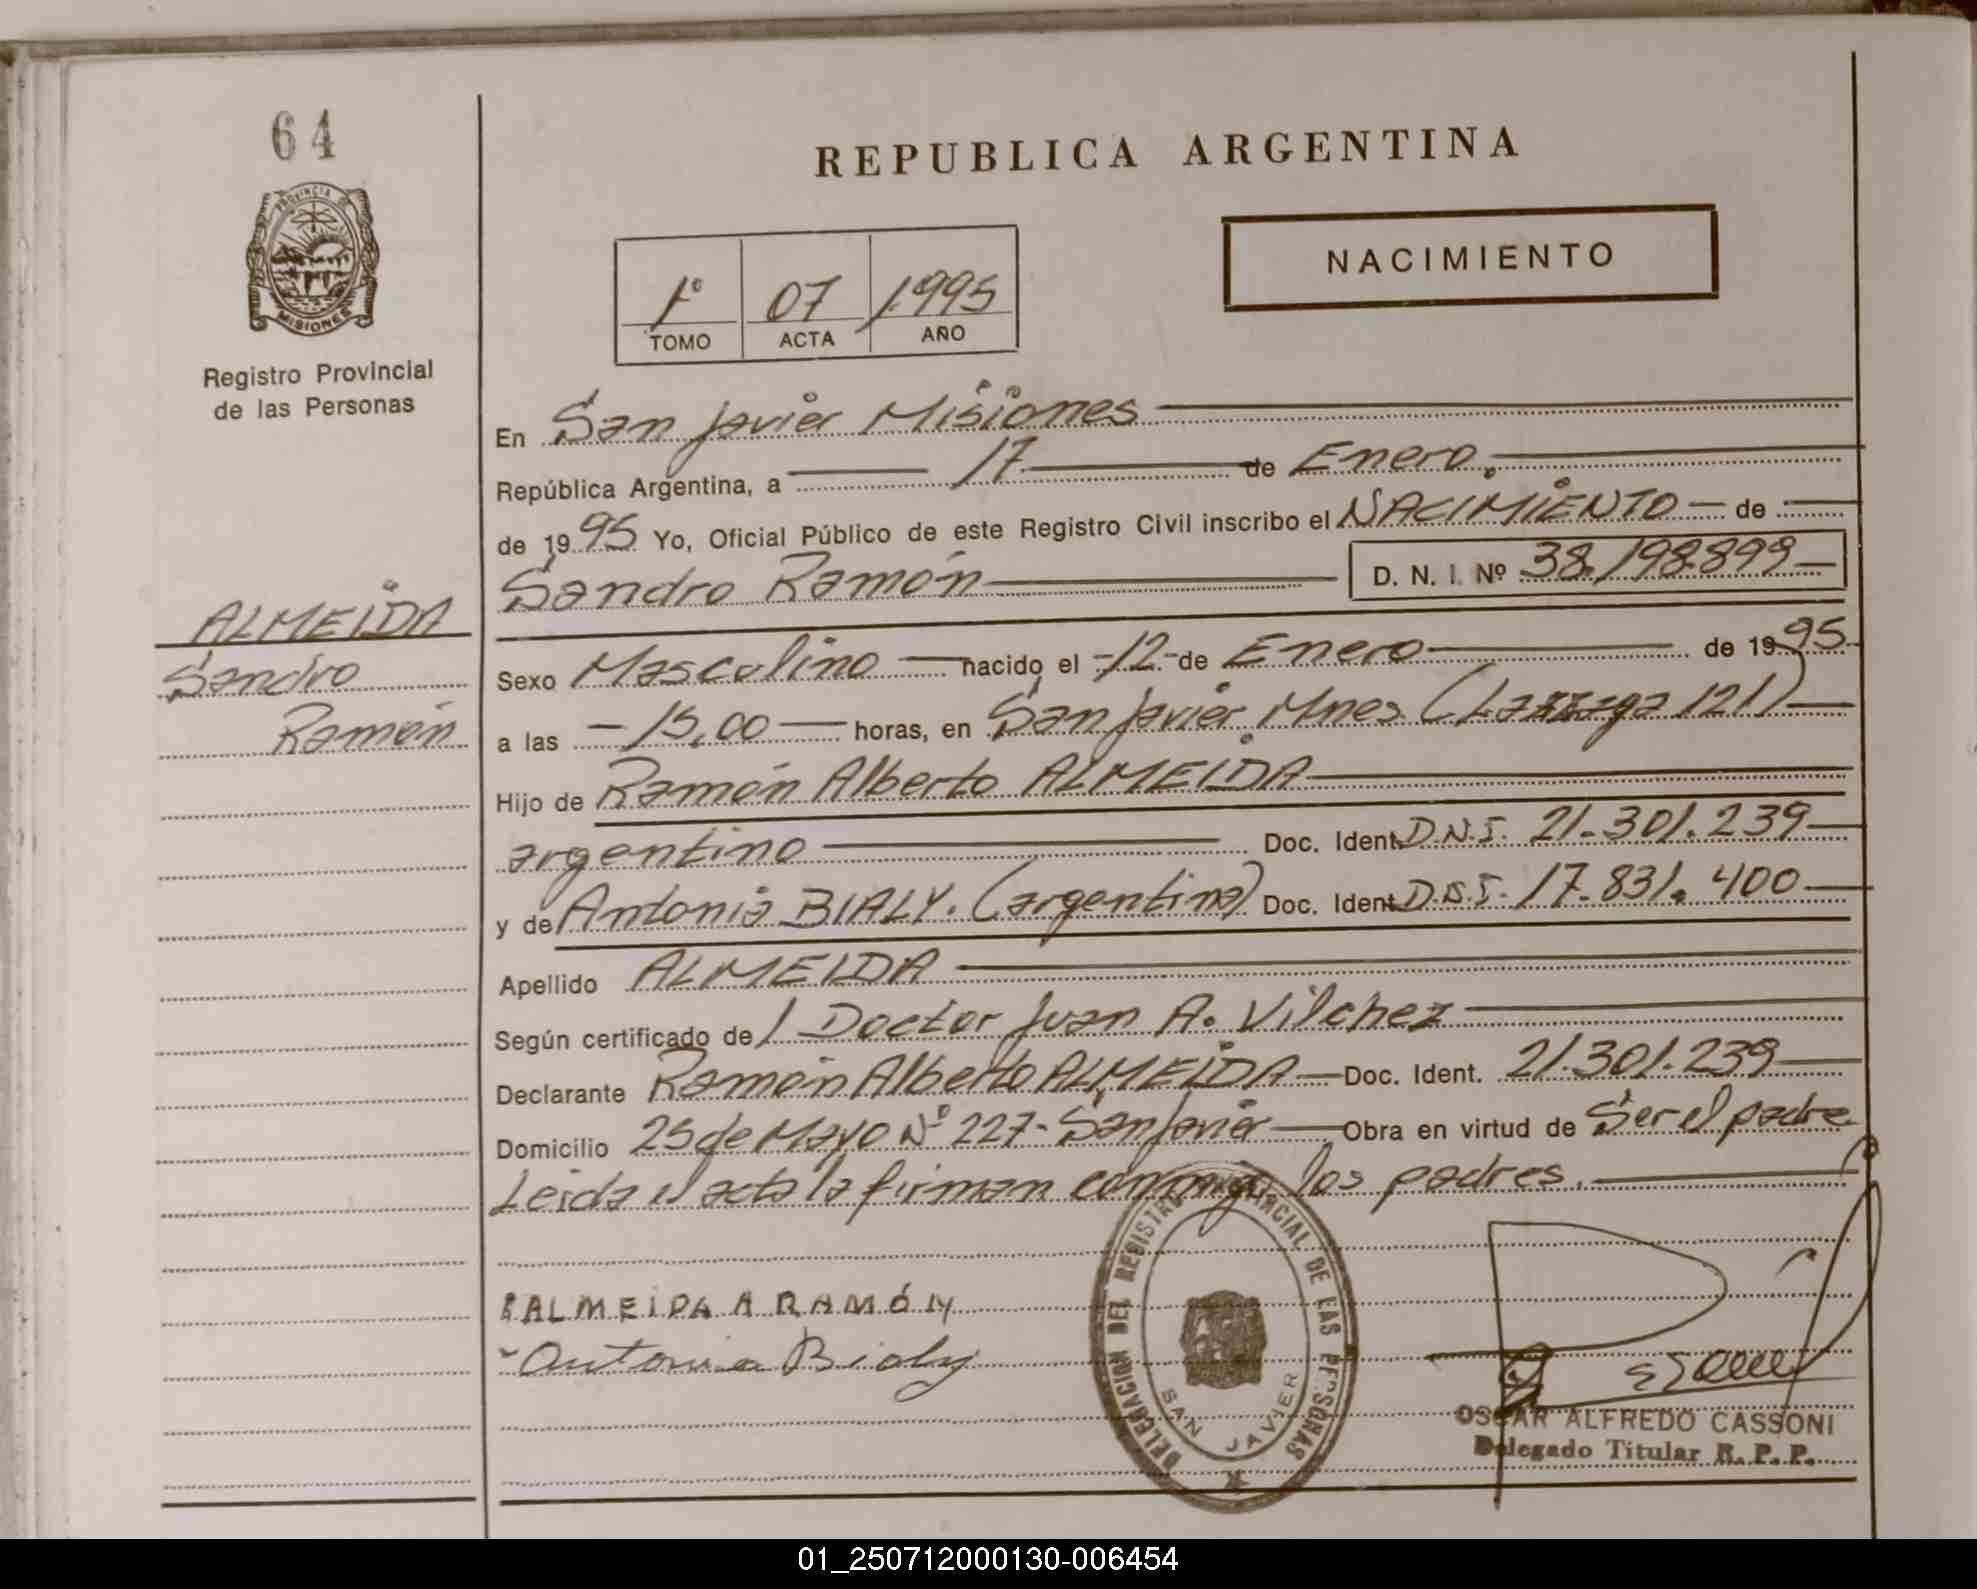 64
PROVINCIA DE
MISIONES
Registro Provincial
de las Personas
REPUBLICA ARGENTINA
NACIMIENTO
1º 07 1995
TOMO ACTA AÑO
En San Javier Misiones
República Argentina, a 17 de Enero.
de 1995 Yo, Oficial Público de este Registro Civil inscribo el NACIMIENTO de
Sandro Ramón D. N. I. Nº 38.198.899
ALMEIDA
Sandro
Ramón
Sexo Masculino nacido el -12- de Enero de 1995
a las -15,00 horas, en San Javier Mnes (Lazzaga 121)
Hijo de Ramón Alberto ALMEIDA
argentino Doc. Ident. D.N.I. 21.301.239
y de Antonia BIALY. (argentina) Doc. Ident. D.N.I. 17.831.400
Apellido ALMEIDA
Según certificado de l Doctor Juan A. Vilchez
Declarante Ramón Alberto ALMEIDA Doc. Ident. 21.301.239
Domicilio 25 de Mayo Nº 227- San Javier Obra en virtud de Ser el padre
Leida el acta la firman conmigo los padres.
ALMEIDA A RAMÓN
Antonia Bialy
DELEGACION DEL REGISTRO PROVINCIAL DE LAS PERSONAS
SAN JAVIER
OSCAR ALFREDO CASSONI
Delegado Titular R. P. P.
01_250712000130-006454